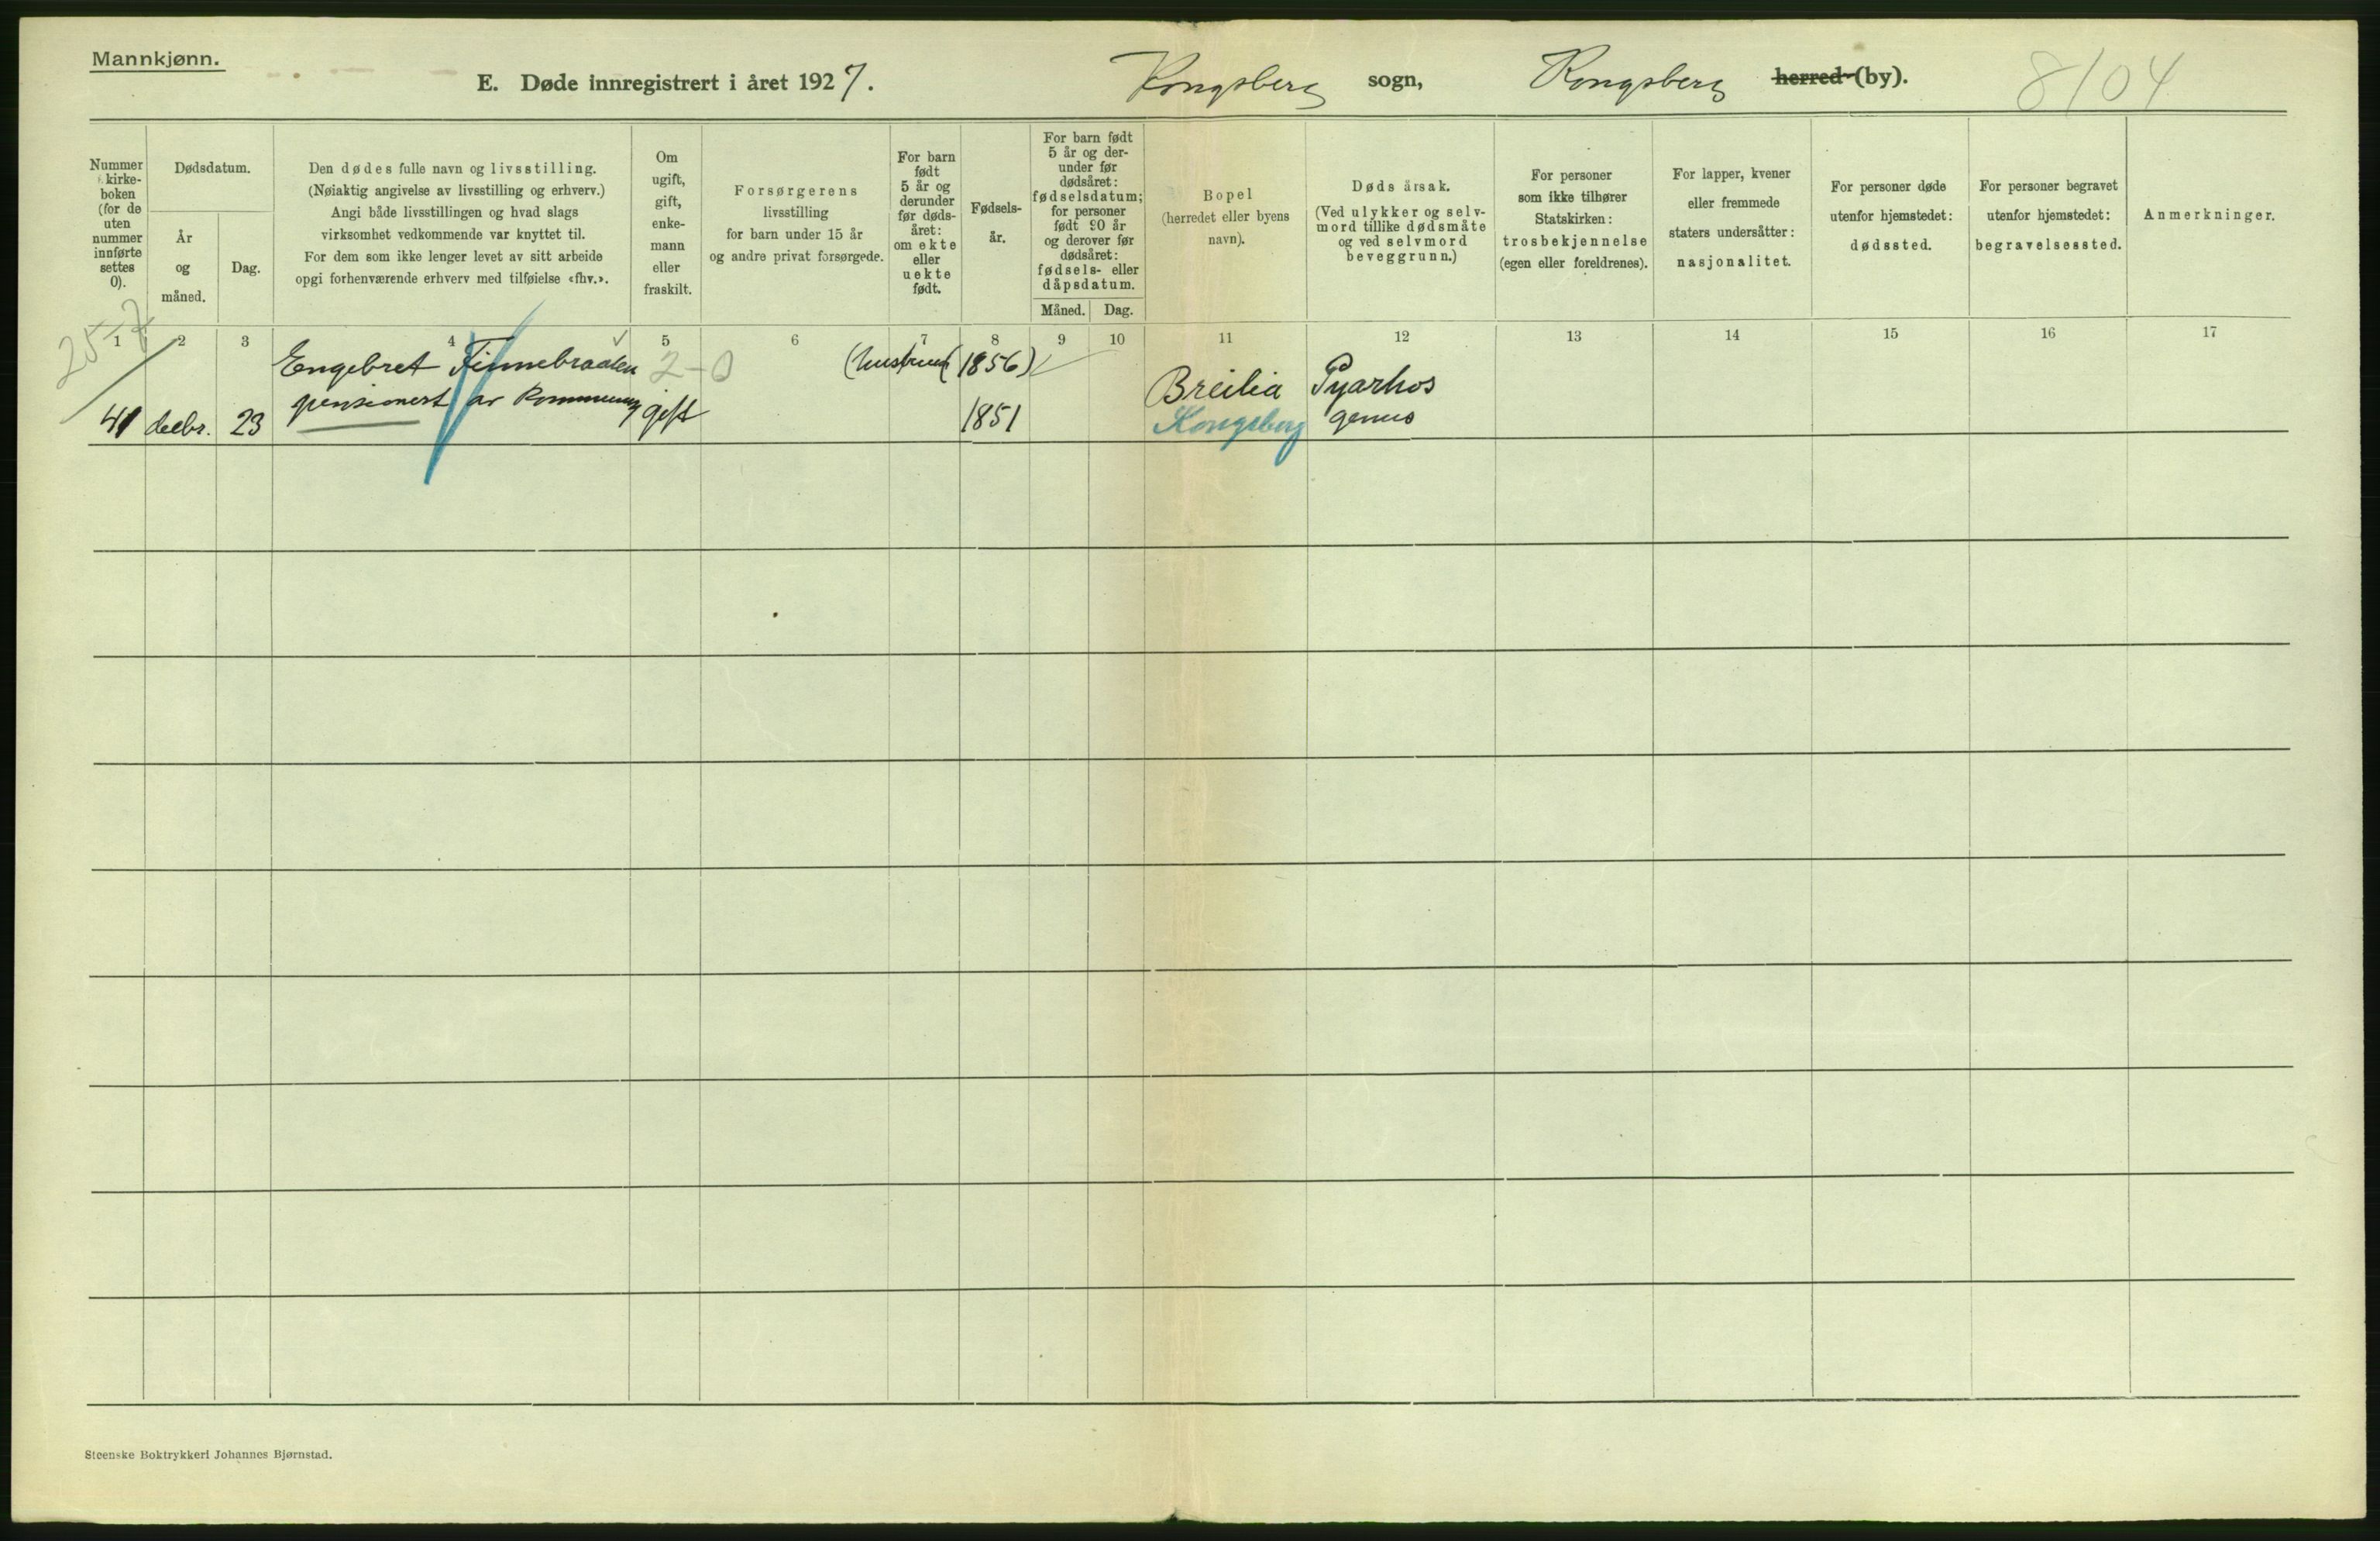 Mannkjønn.
E. Døde innregistrert i året 1927. Kongsberg sogn, Kongsberg herred (by). 8104
Nummer
kirke-
boken
(for de
uten
nummer
innførte
settes
0).
Dødsdatum.
År
og
måned.
Dag.
Den dødes fulle navn og livsstilling.
(Nøiaktig angivelse av livsstilling og erhverv.)
Angi både livsstillingen og hvad slags
virksomhet vedkommende var knyttet til.
For dem som ikke lenger levet av sitt arbeide
opgi forhenværende erhverv med tilføielse «fhv.».
Om
ugift,
gift,
enke-
mann
eller
fraskilt.
Forsørgerens
livsstilling
for barn under 15 år
og andre privat forsørgede.
For barn
født
5 år og
derunder
før døds-
året:
om ekte
eller
uekte
født.
Fødsels-
år.
For barn født
5 år og der-
under før
dødsåret:
fødselsdatum;
for personer
født 90 år
og derover før
dødsåret:
fødsels- eller
dåpsdatum.
Måned. Dag.
Bopel
(herredet eller byens
navn).
Dødsårsak.
(Ved ulykker og selv-
mord tillike dødsmåte
og ved selvmord
beveggrunn.)
For personer
som ikke tilhører
Statskirken:
trosbekjennelse
(egen eller foreldrenes).
For lapper, kvener
eller fremmede
staters undersåtter:
nasjonalitet.
For personer døde
utenfor hjemstedet:
dødssted.
For personer begravet
utenfor hjemstedet:
begravelsessted.
Anmerkninger.
1 2 3 4 5 6 7 8 9 10 11 12 13 14 15 16 17
25-7
Engebret Finnebraaten 2-0 (hustrun (1856)
pensionert av Kommunen
41 decbr. 23 gift 1851 Breilia Pyarhos
Kongsberg genus
Steenske Boktrykkeri Johannes Bjørnstad.